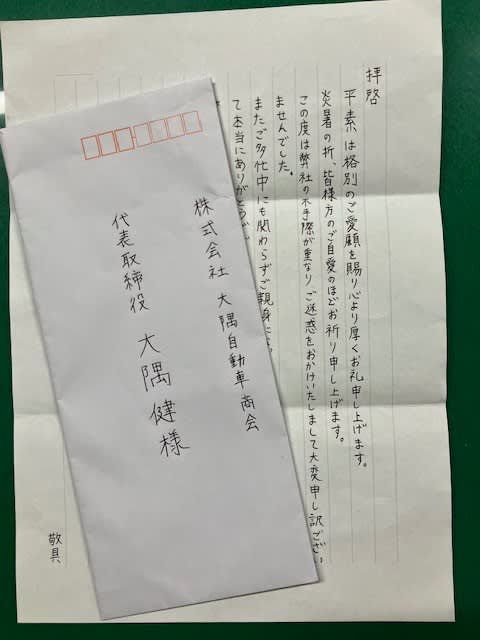 拝啓
平素は格別のご愛顧を賜り心より厚くお礼申し上げます。
炎暑の折、皆様方のご自愛のほどお祈り申し上げます。
この度は弊社の不手際が重なりご迷惑をおかけいたしまして大変申し訳ござい
ませんでした。
またご多忙中にも関わらずご親身に
て本当にありがとうござ
敬具
株式会社 大隅自動車商会
代表取締役 大隅健様